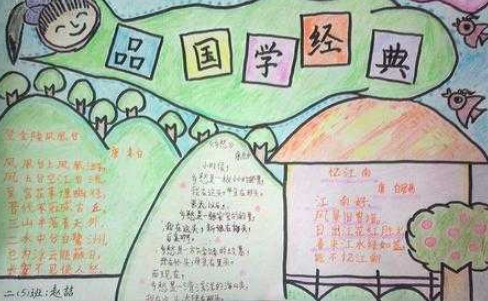 品国学经典
登金陵凤凰台
唐 李白
凤凰台上凤凰游,
凤去台空江自流。
吴宫花草埋幽径,
晋代衣冠成古丘。
三山半落青天外,
二水中分白鹭洲。
长安不见使人愁。
二(5)班:赵喆
《乡愁》
小时候,
乡愁是一枚小小的邮票,
我在这头,
长大以后,
乡愁是一张窄窄的船票,
我在这头,新娘在那头。
后来啊,
乡愁是一方矮矮的坟墓,
而现在,
乡愁是一湾浅浅的海峡,
忆江南
唐 白居易
江南好,
风景旧曾谙。
日出江花红胜火,
春来江水绿如蓝。
能不忆江南